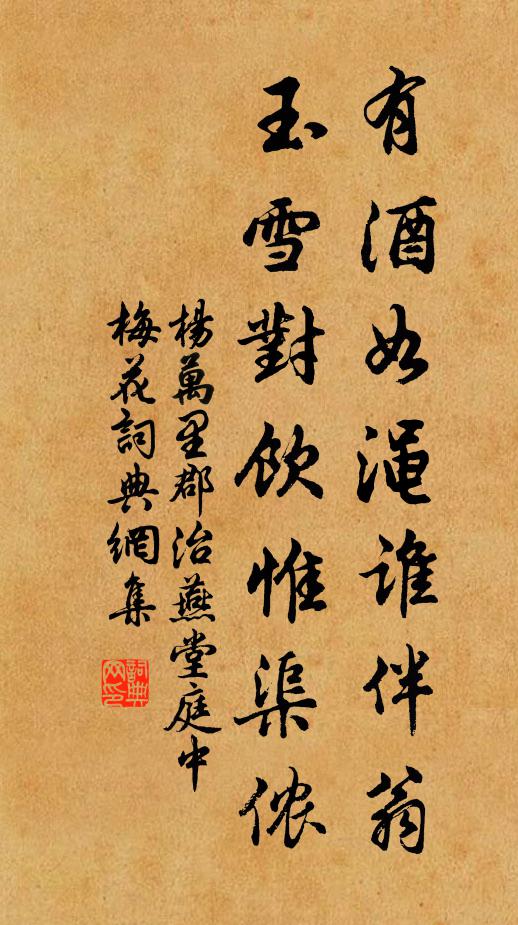 有酒如渑谁伴翁
玉雪對飲惟渠儂
楊萬里郡治燕堂庭中
梅花詞典網集
詞典网印